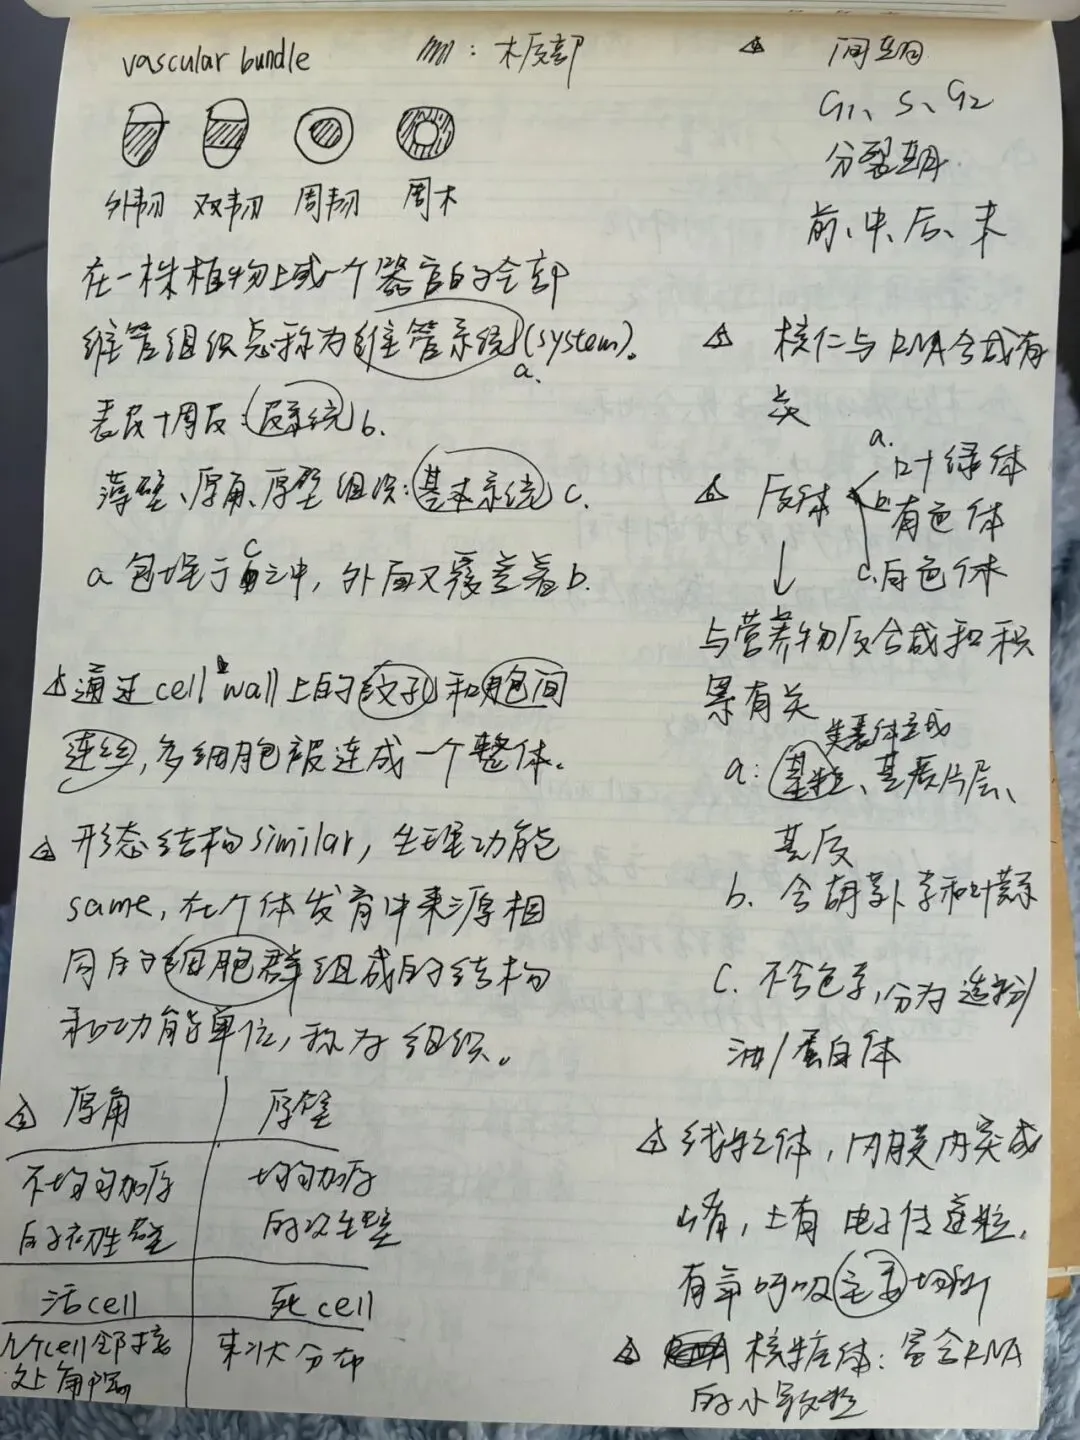 vascular bundle    : 木质部
外韧 双韧 周韧 周木
在一株植物上或一个器官的全部
维管组织总称为维管系统(system)。
a.
表皮+周皮:皮系统 b.
薄壁、厚角、厚壁组织:基本系统 c.
a 包埋于c之中,外面又覆盖着b.
1 通过cell wall上的纹孔和胞间
连丝,多细胞被连成一个整体。
2 形态结构similar,生理功能
same,在个体发育中来源相
同的细胞群组成的结构
和功能单位,称为组织。
3 厚角 厚壁
不均匀加厚 均匀加厚
的初生壁 的次生壁
活cell 死cell
几个cell邻接 束状分布
处上角隅
4 间期
G1、S、G2
分裂期
前、中、后、末
5 核仁与RNA合成有
关
6 质体 a.叶绿体
b.有色体
c.白色体
↓
与营养物质合成和积
累有关
类囊体垛成
a:基粒、基质片层、
基质
b. 含胡萝卜素和叶黄素
C. 不含色素,分为造粉/
油/蛋白体
7 线粒体,内膜内突成
嵴,上有电子传递粒.
有氧呼吸主要场所
8 核糖体:富含RNA
的小颗粒